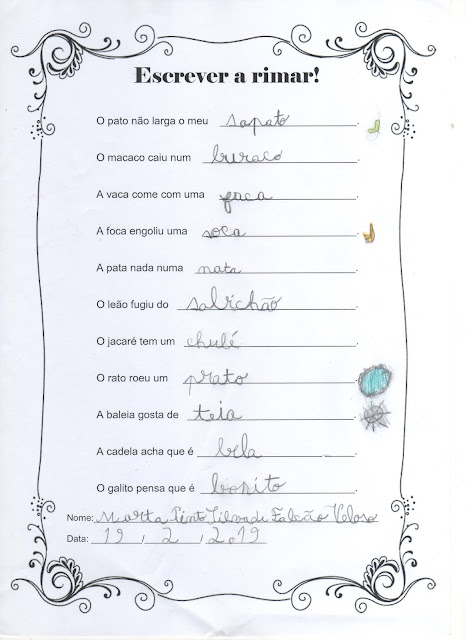 Escrever a rimar!
O pato não larga o meu sapato.
O macaco caiu num buraco.
A vaca come com uma faca.
A foca engoliu uma soca.
A pata nada numa nata.
O leão fugiu do salichão.
O jacaré tem um chulé.
O rato roeu um prato.
A baleia gosta de teia.
A cadela acha que é bela.
O galito pensa que é bonito.
Nome: Marta Pinto Silva de Falcão Veloso
Data: 19 / 2 / 2019